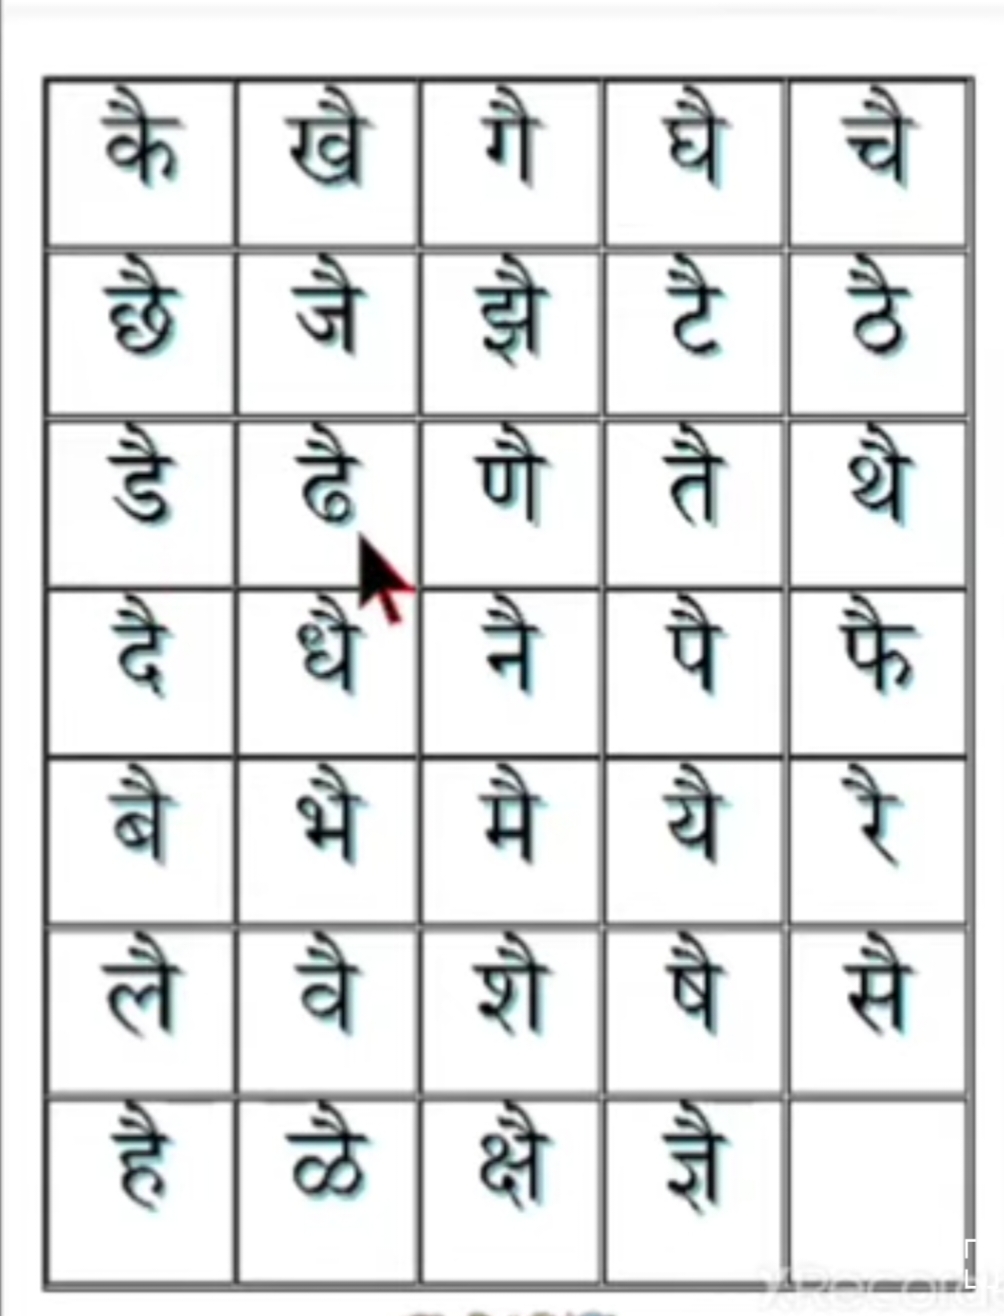 कै खै गै घै चै
छै जै झै टै ठै
डै ढै णै तै थै
दै धै नै पै फै
बै भै मै यै रै
लै वै शै षै सै
है ळै क्षै ज्ञै